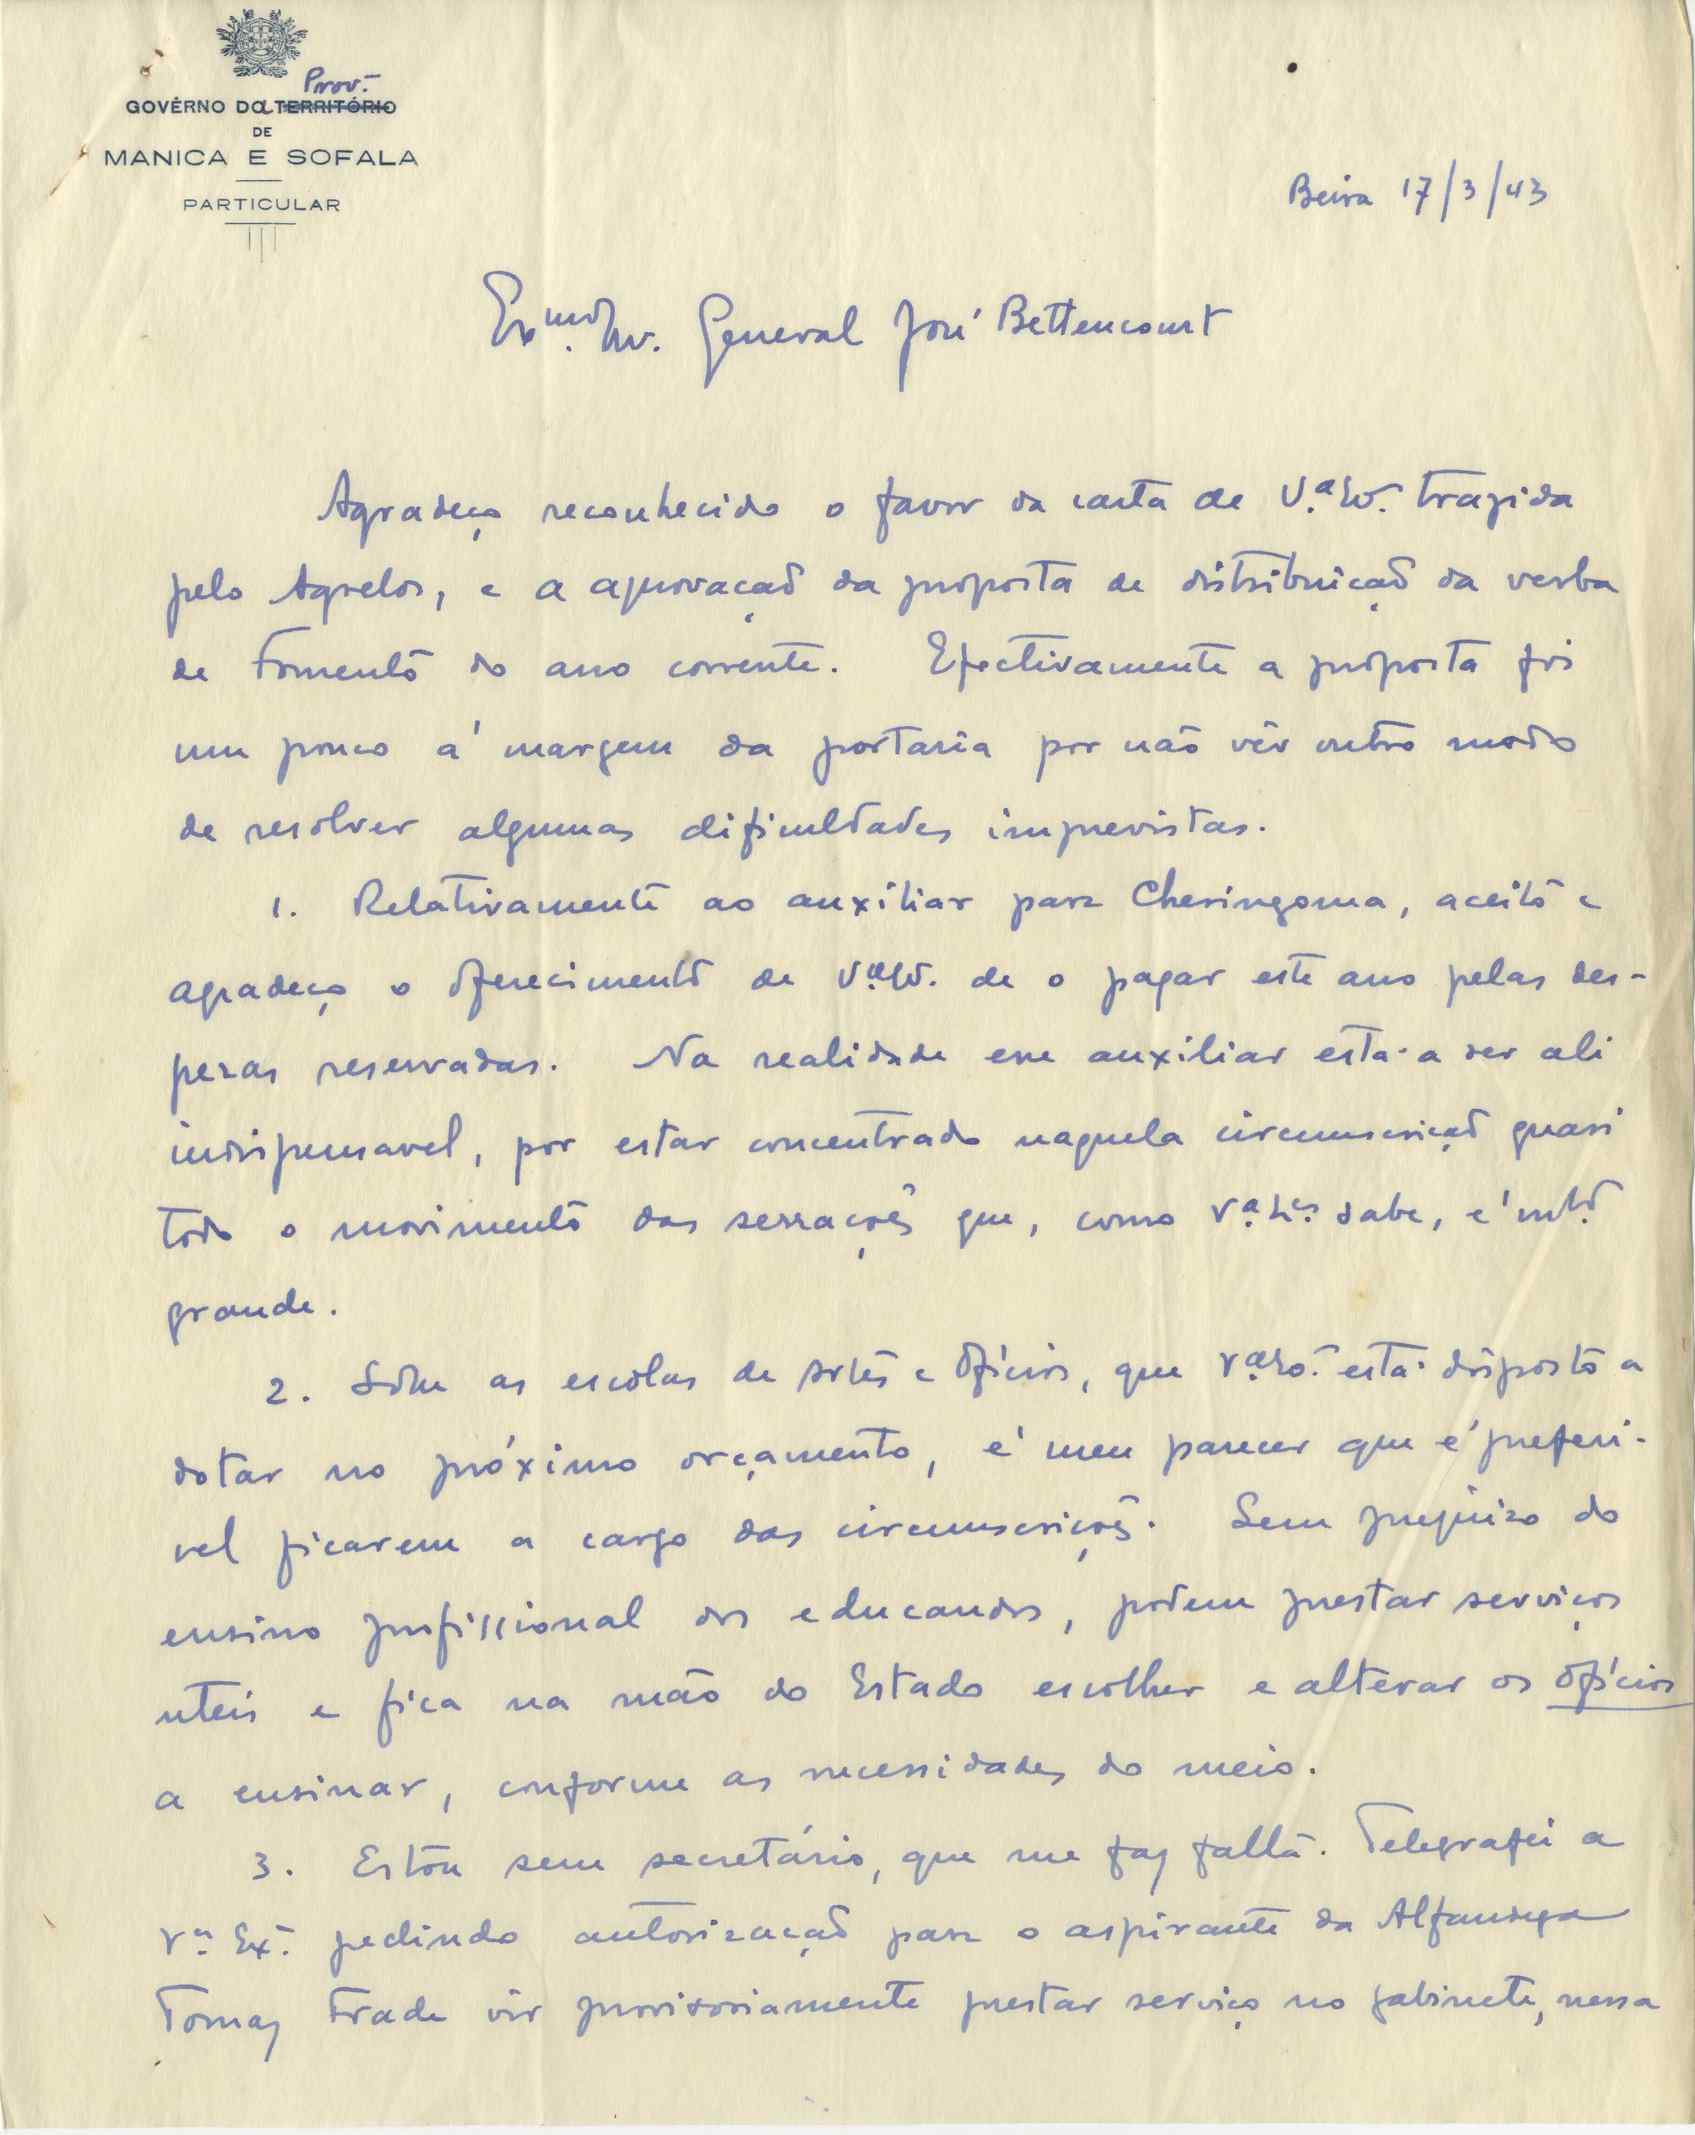 Prov.
GOVÊRNO DA TERRITÓRIO
DE
MANICA E SOFALA
PARTICULAR
Beira 17/3/43
Exmo. Snr. General José Bettencourt
Agradeço reconhecido o favor da carta de V.ª Ex.ª trazida
pelo Agrelos, e a aprovação da proposta de distribuição da verba
de Fomento do ano corrente. Efectivamente a proposta foi
um pouco á margem da portaria por não vêr outro modo
de resolver algumas dificuldades imprevistas.
1. Relativamente ao auxiliar para Cheringoma, aceito e
agradeço o oferecimento de V.ª Ex.ª de o pagar este ano pelas des-
pezas reservadas. Na realidade esse auxiliar está a ser ali
indispensavel, por estar concentrado naquela circumscrição quasi
todo o movimento das serrações que, como V.ª Ex.ª sabe, é mto.
grande.
2. Sôbre as escolas de Artes e Ofícios, que V.ª Ex.ª está disposto a
dotar no próximo orçamento, é meu parecer que é preferi-
vel ficarem a cargo das circumscrições. Sem prejuizo do
ensino profissional dos educandos, podem prestar serviços
uteis e fica na mão do Estado escolher e alterar os ofícios
a ensinar, conforme as necessidades do meio.
3. Estou sem secretário, que me faz falta. Telegrafei a
V.ª Ex.ª pedindo autorização para o aspirante da Alfandega
Tomaz Frade vir provisoriamente prestar serviço no gabinete, nessa